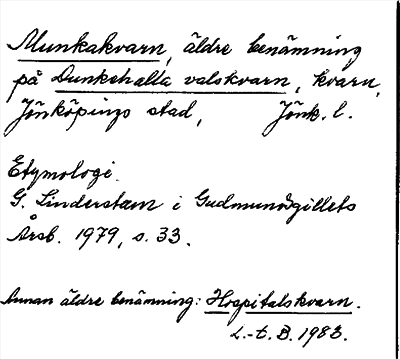 Munkakvarn, äldre benämning
på Dunkehalla valskvarn, kvarn,
Jönköpings stad, Jönk. l.
Etymologi.
G. Linderstam i Gudmundsgillets
Årsb. 1979, s. 33.
Annan äldre benämning: Hospitalskvarn.
L.-t. B. 1983.